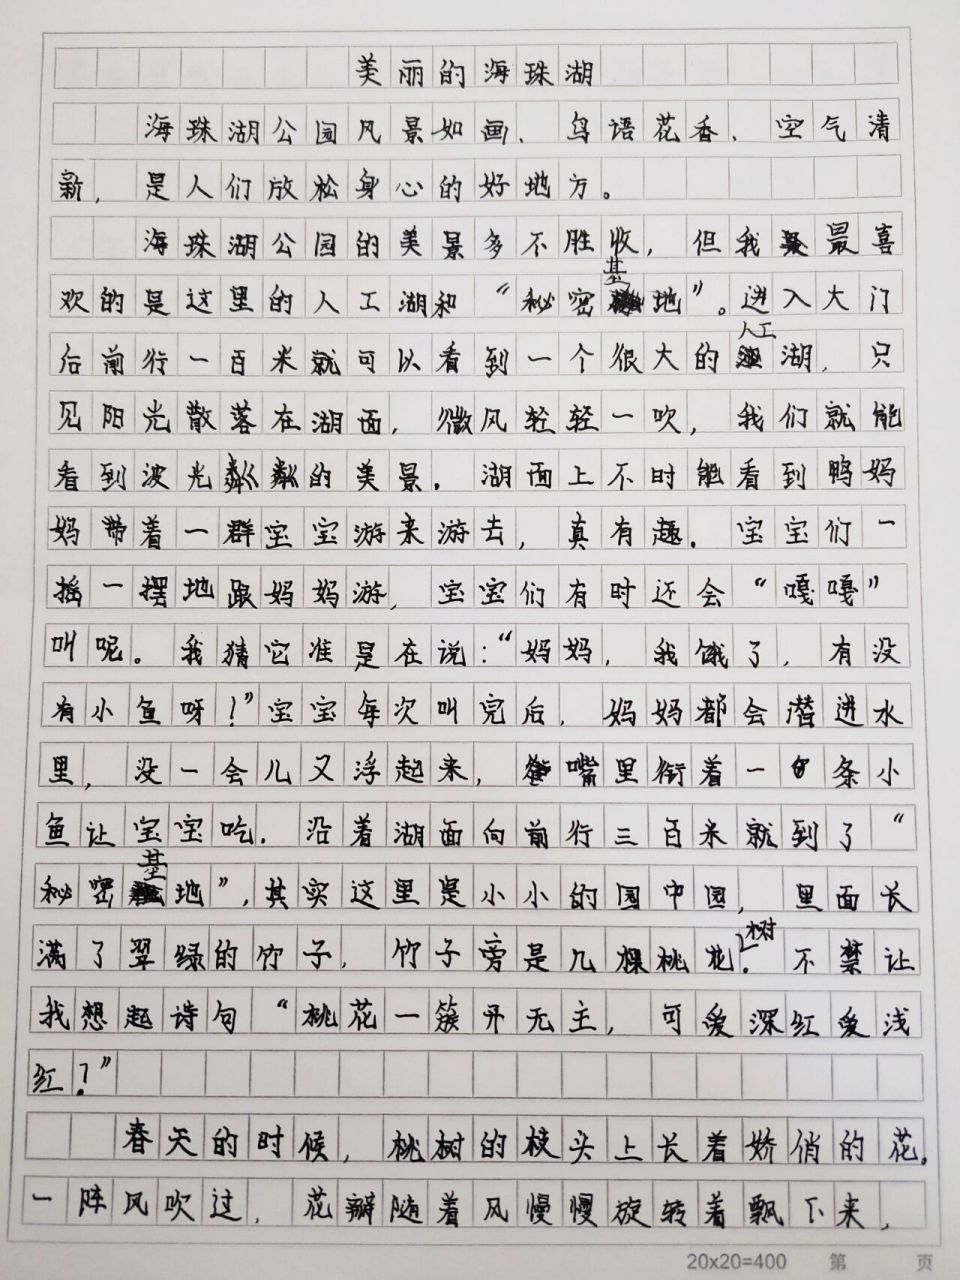 美丽的海珠湖
海珠湖公园风景如画、鸟语花香、空气清
新,是人们放松身心的好地方。
海珠湖公园的美景多不胜收,但我最喜
欢的是这里的人工湖和“秘密基地”。进入大门
后前行一百米就可以看到一个很大的人工湖,只
见阳光散落在湖面,微风轻轻一吹,我们就能
看到波光粼粼的美景.湖面上不时能看到鸭妈
妈带着一群宝宝游来游去,真有趣.宝宝们一
摇一摆地跟妈妈游,宝宝们有时还会“嘎嘎”
叫呢。我猜它准是在说:“妈妈,我饿了,有没
有小鱼呀!”宝宝每次叫完后,妈妈都会潜进水
里,没一会儿又浮起来,嘴里衔着一条小
鱼让宝宝吃.沿着湖面向前行三百米就到了“
秘密基地”,其实这里是小小的园中园,里面长
满了翠绿的竹子,竹子旁是几棵桃花树.不禁让
我想起诗句“桃花一簇开无主,可爱深红爱浅
红?”
春天的时候,桃树的枝头上长着娇俏的花.
一阵风吹过,花瓣随着风慢慢旋转着飘下来,
20x20=400 第 页